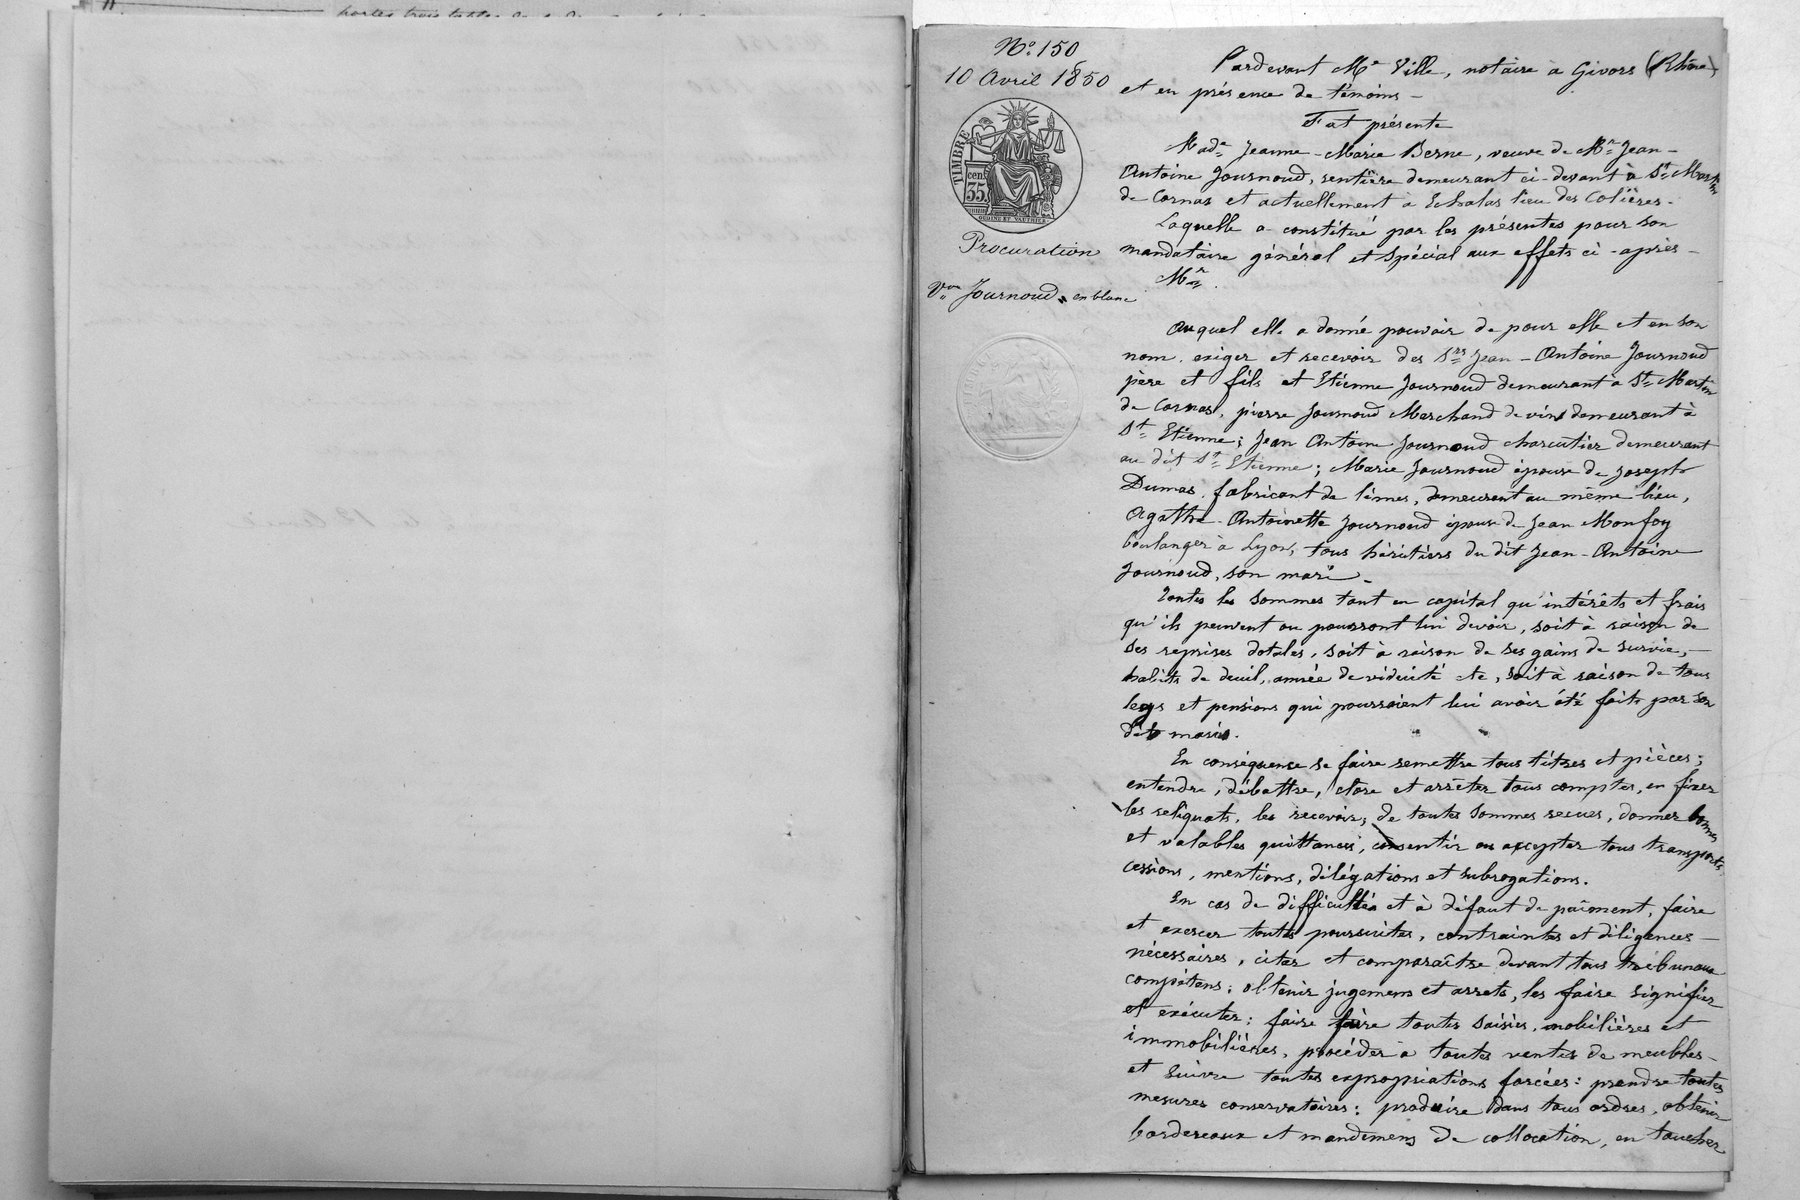 No. 150
10 Avril 1850
TIMBRE
35
cen.
Procuration
Vve Journoud, en blanc
Pardevant Me Ville, notaire à Givors (Rhône),
et en présence de témoins -
Fut présente
Made Jeanne-Marie Berne, veuve de Mr Jean-
Antoine Journoud, rentière demeurant ci-devant à St Martin
de Cornas et actuellement à Echalas lieu des Colières.
Laquelle a constitué par les présentes pour son
mandataire général et spécial aux effets ci-après -
Mr
Auquel elle a donné pouvoir de pour elle et en son
nom, exiger et recevoir des Srs Jean-Antoine Journoud
père et fils et Etienne Journoud demeurant à St Martin
de Cornas, pierre Journoud Marchand de vins demeurant à
St Etienne; Jean Antoine Journoud charcutier demeurant
au dit St Etienne; Marie Journoud épouse de Joseph
Dumas, fabricant de limes, demeurant au même lieu,
Agathe-Antoinette Journoud épouse de Jean Monfoy
boulanger à Lyon, tous héritiers du dit Jean-Antoine
Journoud, son mari -
Toutes les sommes tant en capital qu'intérêts et frais
qu'ils peuvent ou pourront lui devoir, soit à raison de
ses reprises dotales, soit à raison de ses gains de survie, -
habits de deuil, année de viduité etc, soit à raison de tous
legs et pensions qui pourraient lui avoir été faits par son
dit mari.
En conséquense se faire remettre tous titres et pièces;
entendre, débattre, clore et arrêter tous comptes, en fixer
les reliquats, les recevoir, de toutes sommes recues, donner bonnes
et valables quittances, consentir ou accepter tous transports,
cessions, mentions, délégations et subrogations.
En cas de difficultés et à défaut de paîment, faire
et exercer toutes poursuites, contraintes et diligences -
nécessaires, citer et comparaître devant tous tribunaux
compétens; obtenir jugemens et arrets, les faire signifier
et exécuter; faire faire toutes saisies, mobilières et
immobilières, procéder à toutes ventes de meubles -
et suivre toutes expropriations forcées: prendre toutes
mesures conservatoires: produire dans tous ordres, obtenir
bordereaux et mandemens de collocation, en toucher